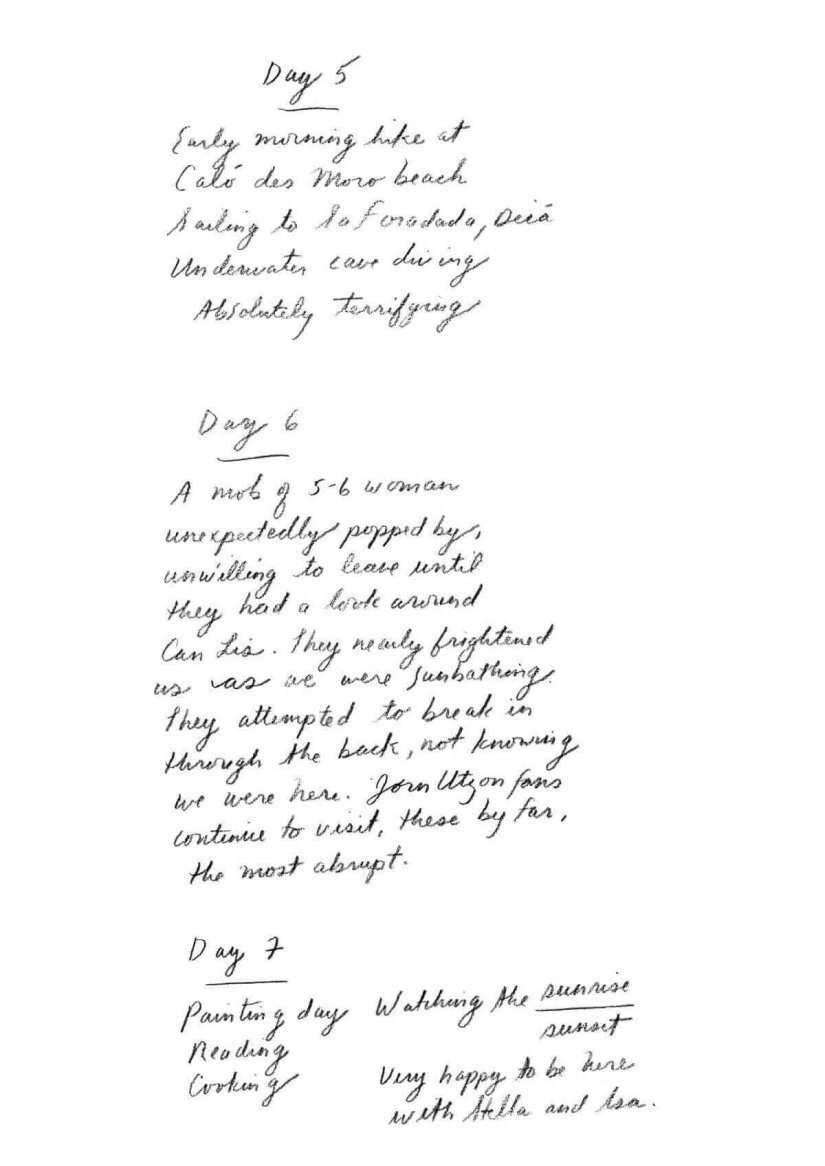 Day 5
Early morning hike at
Caló des Moro beach
Sailing to Sa Foradada, Deiá
Underwater cave diving
Absolutely terrifying
Day 6
A mob of 5-6 woman
unexpectedly popped by,
unwilling to leave until
they had a look around
Can Lis. They nearly frightened
us as we were sunbathing.
They attempted to break in
through the back, not knowing
we were here. Jorn Utzon fans
continue to visit, these by far,
the most abrupt.
Day 7
Painting day
Reading
Cooking
Watching the sunrise
sunset
Very happy to be here
with Stella and Isa.